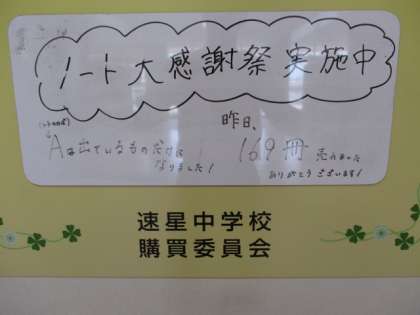 ノート大感謝祭実施中
昨日、
Aは出ているものだけに
なりました!
169冊 売れました
ありがとうございます!
速星中学校
購買委員会